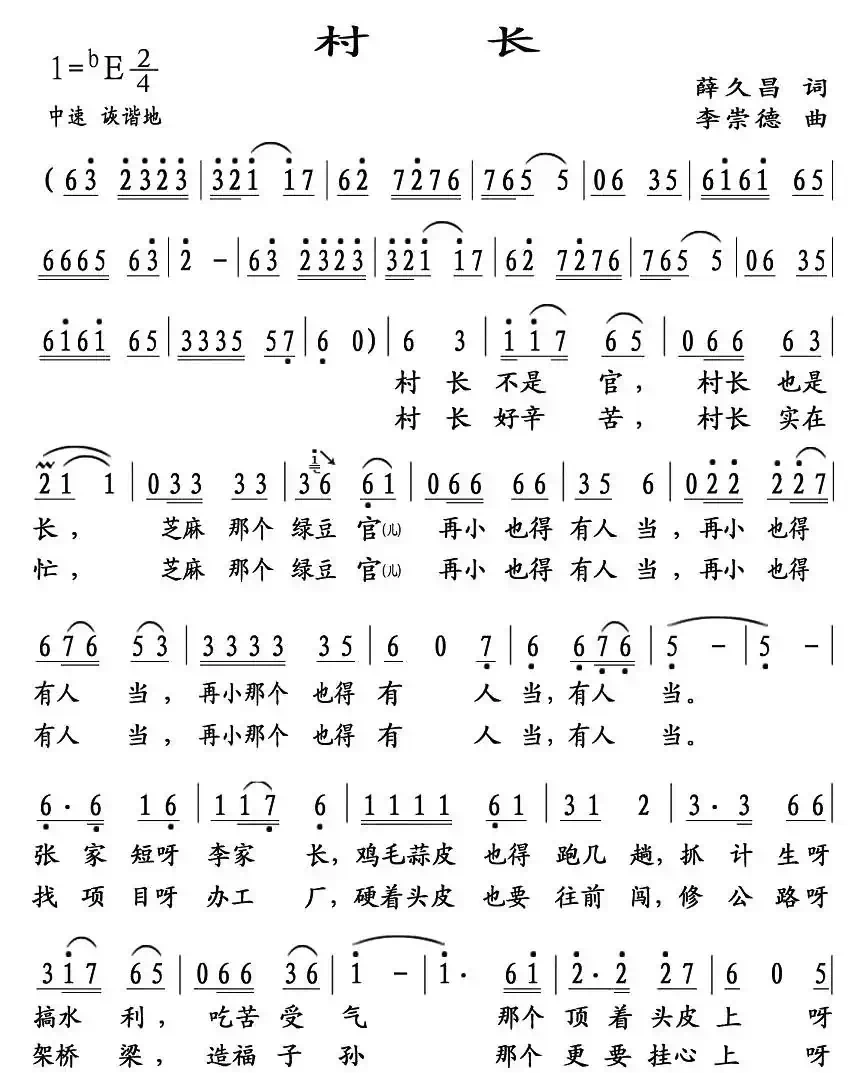 村 长
1=ᵇE 2/4
薛久昌 词
中速 诙谐地
李崇德 曲
(6 3̇ 2̇3̇2̇3̇ | 3̇2̇1̇ 1̇7 | 62̇ 72̇76 | 765 5 | 06 35 | 61̇61̇ 65 |
6665 63̇ | 2̇ - | 63̇ 2̇3̇2̇3̇ | 3̇2̇1̇ 1̇7 | 62̇ 72̇76 | 765 5 | 06 35 |
61̇61̇ 65 | 3335 57̣ | 6̣ 0) | 6 3 | 1̇ 1̇7 65 | 066 63 |
村 长 不是 官， 村长 也是
村 长 好辛 苦， 村长 实在
21 1 | 033 33 | 36 6̣1 | 066 66 | 35 6 | 02̇2̇ 2̇2̇7 |
长， 芝麻 那个 绿豆 官(儿) 再小 也得 有人 当，再小 也得
忙， 芝麻 那个 绿豆 官(儿) 再小 也得 有人 当，再小 也得
676 53 | 3333 35 | 6 0 7̣ | 6̣ 6̣7̣6̣ | 5̣ - | 5̣ - |
有人 当，再小那个 也得 有 人 当，有人 当。
有人 当，再小那个 也得 有 人 当，有人 当。
6̣·6̣ 16̣ | 117̣ 6̣ | 1111 6̣1 | 31 2 | 3·3 66 |
张 家 短呀 李家 长，鸡毛蒜皮 也得 跑几 趟，抓 计 生呀
找 项 目呀 办工 厂，硬着头皮 也要 往前 闯，修 公 路呀
31̇7 65 | 066 36 | 1̇ - | 1̇· 61̇ | 2̇·2̇ 2̇7 | 6 0 5 |
搞水 利， 吃苦 受 气 那个 顶 着 头皮 上 呀
架桥 梁， 造福 子 孙 那个 更 要 挂心 上 呀